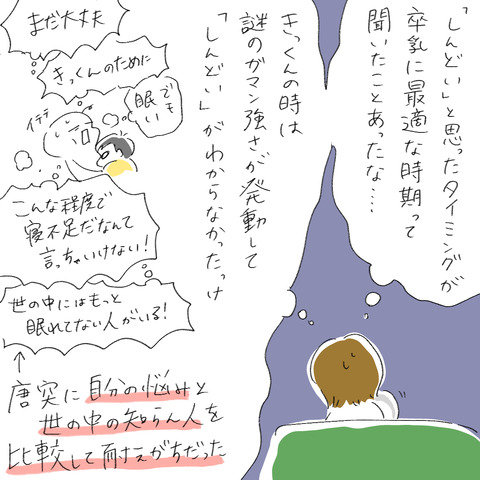 「しんどい」と思ったタイミングが
卒乳に最適な時期って
聞いたことあったな…
きっくんの時は
謎のガマン強さが発動して
「しんどい」がわからなかったっけ
まだ大丈夫
きっくんのために
でも
眠い
イテテ
こんな程度で
寝不足だなんて
言っちゃいけない！
世の中にはもっと
眠れてない人がいる！
↑
唐突に自分の悩みと
世の中の知らん人を
比較して耐えがちだった